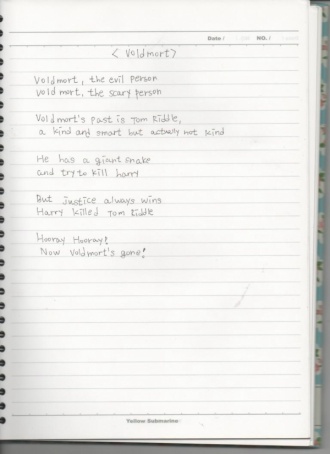 Date / NO. /
< Voldmort >
Voldmort, the evil person
Voldmort, the scary person
Voldmort's past is Tom Riddle,
a kind and smart but actually not kind
He has a giant snake
and try to kill harry
But justice always wins
Harry killed Tom Riddle
Hooray Hooray!
Now Voldmort's gone!
Yellow Submarine